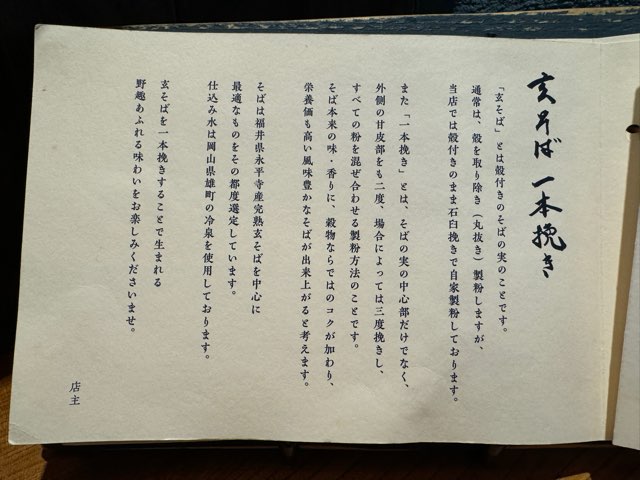 玄そば 一本挽き
「玄そば」とは殻付きのそばの実のことです。
通常は、殻を取り除き（丸抜き）製粉しますが、
当店では殻付きのまま石臼挽きで自家製粉しております。
また「一本挽き」とは、そばの実の中心部だけでなく、
外側の甘皮部をも二度、場合によっては三度挽きし、
すべての粉を混ぜ合わせる製粉方法のことです。
そば本来の味・香りに、穀物ならではのコクが加わり、
栄養価も高い風味豊かなそばが出来上がると考えます。
そばは福井県永平寺産完熟玄そばを中心に
最適なものをその都度選定しています。
仕込み水は岡山県雄町の冷泉を使用しております。
玄そばを一本挽きすることで生まれる
野趣あふれる味わいをお楽しみくださいませ。
店主